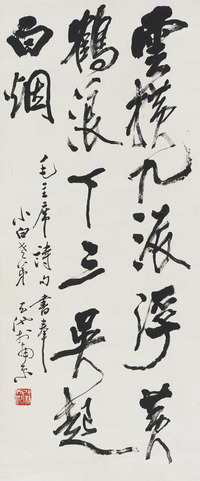 雲横九派浮黄
鶴浪下三吴起
白烟
毛主席詩句書奉
小白老弟